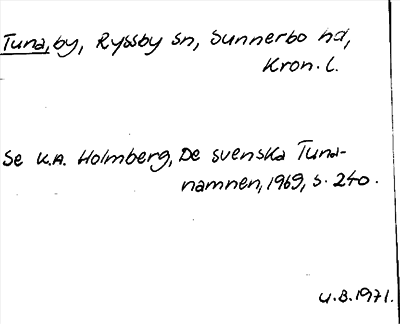 Tuna, by, Ryssby sn, Sunnerbo hd,
Kron. l.
Se K.A. Holmberg, De svenska Tuna-
namnen, 1969, s. 240.
U.B. 1971.